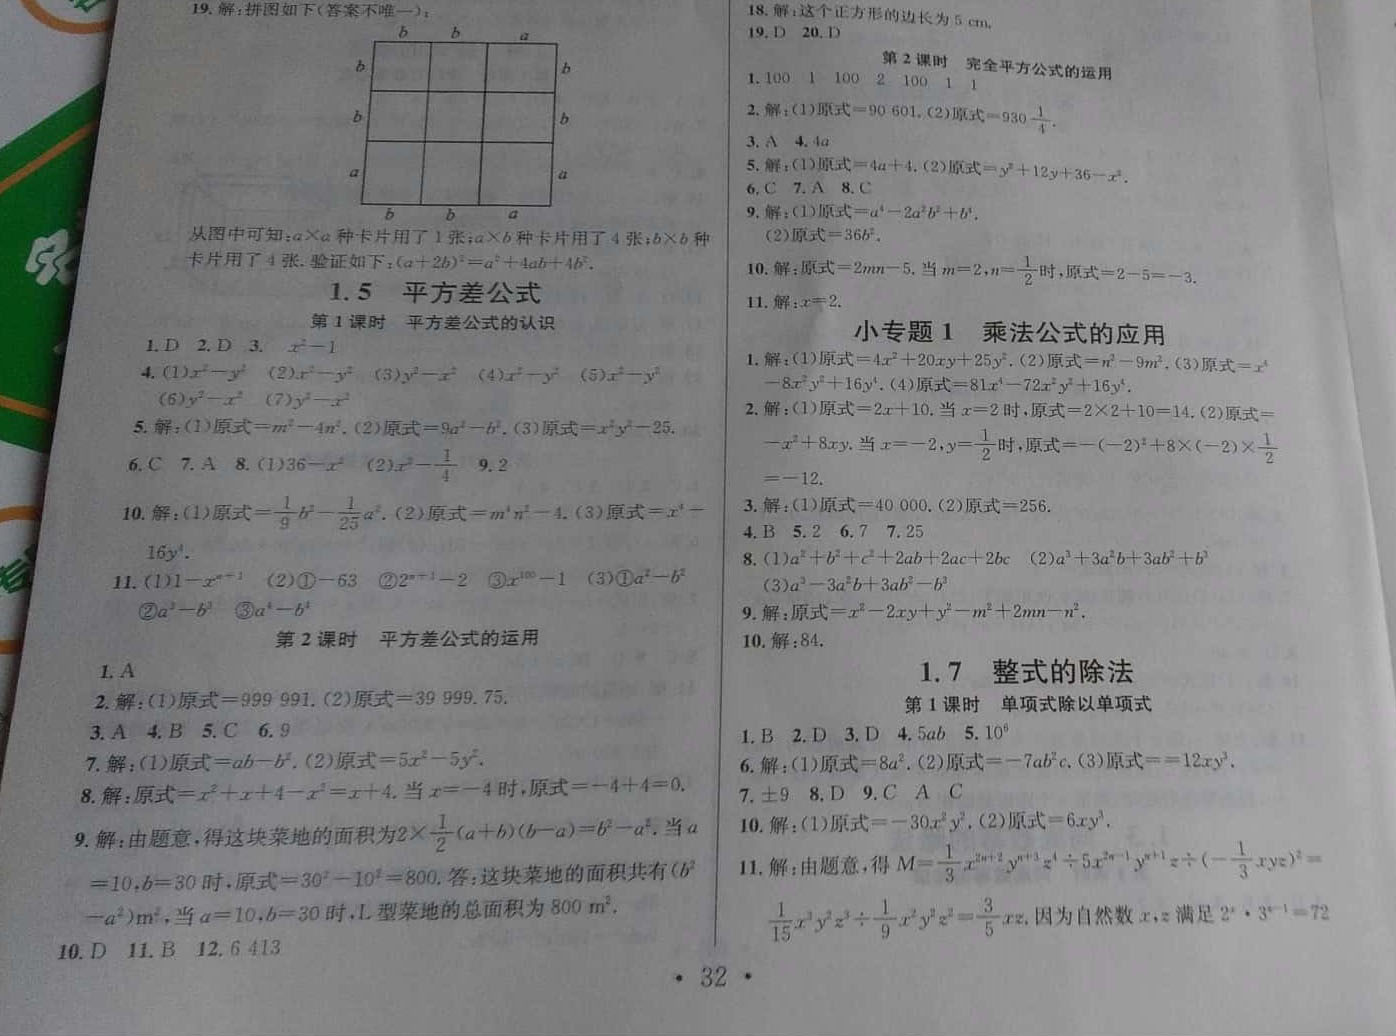 19. 解:拼图如下(答案不唯一):
b b a
b b
b b
a a
b b a
从图中可知:a×a 种卡片用了 1 张;a×b 种卡片用了 4 张;b×b 种
卡片用了 4 张. 验证如下:(a+2b)²=a²+4ab+4b².
1.5 平方差公式
第 1 课时 平方差公式的认识
1. D 2. D 3. x²−1
4. (1)x²−y² (2)x²−y² (3)y²−x² (4)x²−y² (5)x²−y²
(6)y²−x² (7)y²−x²
5. 解:(1)原式=m²−4n². (2)原式=9a²−b². (3)原式=x²y²−25.
6. C 7. A 8. (1)36−x² (2)x²−1/4 9. 2
10. 解:(1)原式=1/9b²−1/25a². (2)原式=m⁴n²−4. (3)原式=x⁴−
16y⁴.
11. (1)1−xⁿ⁺¹ (2)①−63 ②2ⁿ⁺¹−2 ③x¹⁰⁰−1 (3)①a²−b²
②a³−b³ ③a⁴−b⁴
第 2 课时 平方差公式的运用
1. A
2. 解:(1)原式=999 991. (2)原式=39 999.75.
3. A 4. B 5. C 6. 9
7. 解:(1)原式=ab−b². (2)原式=5x²−5y².
8. 解:原式=x²+x+4−x²=x+4. 当 x=−4 时,原式=−4+4=0.
9. 解:由题意,得这块菜地的面积为2×1/2(a+b)(b−a)=b²−a². 当 a
=10,b=30 时,原式=30²−10²=800. 答:这块菜地的面积共有(b²
−a²)m²,当 a=10,b=30 时,L 型菜地的总面积为 800 m².
10. D 11. B 12. 6 413
18. 解:这个正方形的边长为 5 cm.
19. D 20. D
第 2 课时 完全平方公式的运用
1. 100 1 100 2 100 1 1
2. 解:(1)原式=90 601. (2)原式=930 1/4.
3. A 4. 4a
5. 解:(1)原式=4a+4. (2)原式=y²+12y+36−x².
6. C 7. A 8. C
9. 解:(1)原式=a⁴−2a²b²+b⁴.
(2)原式=36b².
10. 解:原式=2mn−5. 当 m=2,n=1/2时,原式=2−5=−3.
11. 解:x=2.
小专题 1 乘法公式的应用
1. 解:(1)原式=4x²+20xy+25y². (2)原式=n²−9m². (3)原式=x⁴
−8x²y²+16y⁴. (4)原式=81x⁴−72x²y²+16y⁴.
2. 解:(1)原式=2x+10. 当 x=2 时,原式=2×2+10=14. (2)原式=
−x²+8xy. 当 x=−2,y=1/2时,原式=−(−2)²+8×(−2)×1/2
=−12.
3. 解:(1)原式=40 000. (2)原式=256.
4. B 5. 2 6. 7 7. 25
8. (1)a²+b²+c²+2ab+2ac+2bc (2)a³+3a²b+3ab²+b³
(3)a³−3a²b+3ab²−b³
9. 解:原式=x²−2xy+y²−m²+2mn−n².
10. 解:84.
1.7 整式的除法
第 1 课时 单项式除以单项式
1. B 2. D 3. D 4. 5ab 5. 10⁶
6. 解:(1)原式=8a². (2)原式=−7ab²c. (3)原式==12xy³.
7. ±9 8. D 9. C A C
10. 解:(1)原式=−30x²y². (2)原式=6xy³.
11. 解:由题意,得 M=1/3x²ⁿ⁺²yⁿ⁺³z⁴÷5x²ⁿ⁻¹yⁿ⁺¹z÷(−1/3xyz)²=
1/15x³y²z³÷1/9x²y²z²=3/5xz. 因为自然数 x,z 满足 2ˣ·3ᶻ⁻¹=72
· 32 ·